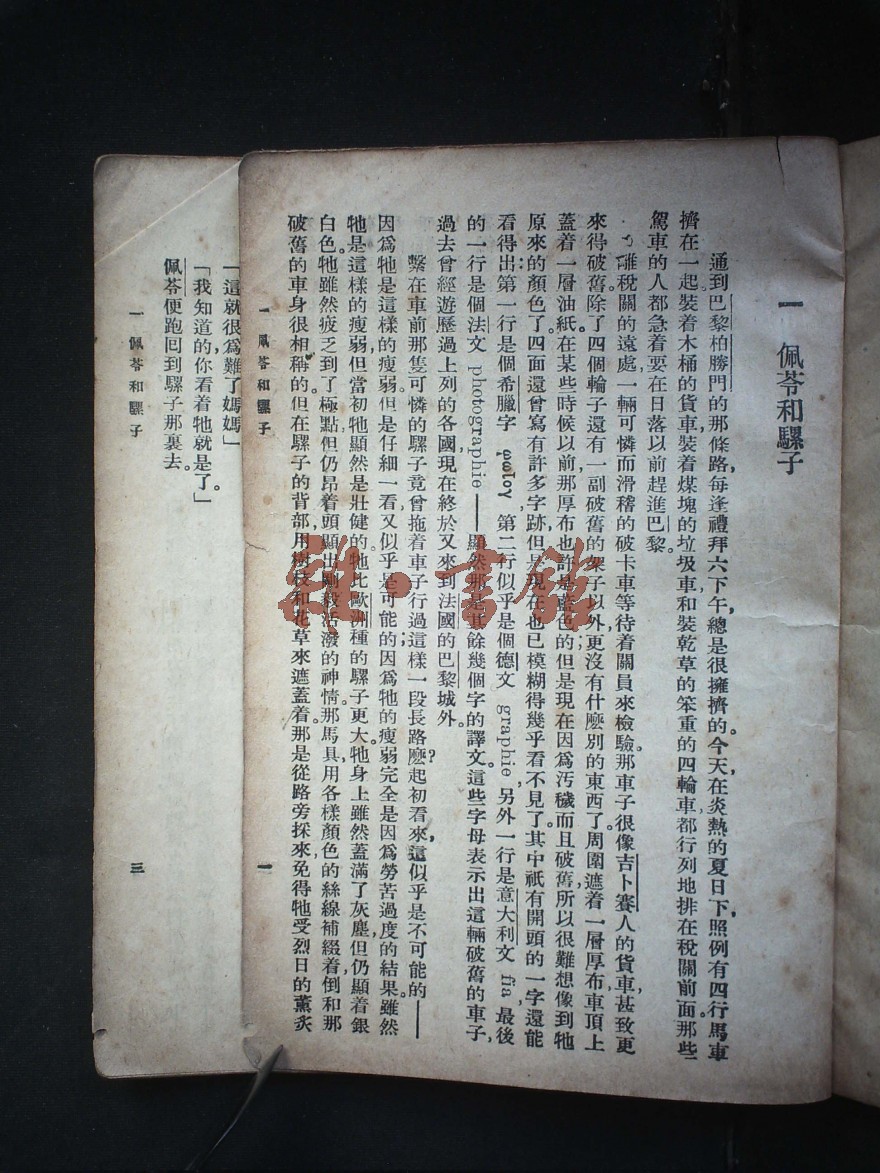 一 佩苓和騾子
通到巴黎柏勝門的那條路,每逢禮拜六下午,總是很擁擠的。今天在炎熱的夏日下,照例有四行馬車
擠在一起。裝着木桶的貨車,裝着煤塊的垃圾車和裝乾草的笨重的四輪車,都行列地排在稅關前面。那些
駕車的人都急着要在日落以前趕進巴黎。
離稅關的遠處,一輛可憐而滑稽的破卡車等待着關員來檢驗。那車子很像吉卜賽人的貨車,甚致更
來得破舊。除了四個輪子,還有一副破舊的架子以外,更沒有什麼別的東西了。周圍遮着一層厚布,車頂上
蓋着一層油紙。在某些時候以前,那厚布也許是藍色的,但是現在因為汚穢而且破舊,所以很難想像到牠
原來的顏色了。四面還曾寫有許多字跡,但是現在也已模糊得幾乎看不見了。其中祇有開頭的一字還能
看得出:第一行是個希臘字 φωτογ, 第二行似乎是個德文 graphie, 另外一行是意大利文 fia, 最後
的一行是個法文 photographie——顯然那是其餘幾個字的譯文。這些字母表示出這輛破舊的車子,
過去曾經遊歷過上列的各國,現在終於又來到法國的巴黎城外。
繫在車前那隻可憐的騾子,竟曾拖着車子行過這樣一段長路麼?起初看來,這似乎是不可能的——
因為牠是這樣的瘦弱;但是仔細一看,又似乎是可能的,因為牠的瘦弱完全是因為勞苦過度的結果。雖然
牠是這樣的瘦弱,但當初牠顯然是壯健的。牠比歐洲種的騾子更大。牠身上雖然蓋滿了灰塵,但仍顯着銀
白色。牠雖然疲乏到了極點,但仍昂着頭,顯出剛毅活潑的神情。那馬具,用各樣顏色的絲線補綴着,倒和那
破舊的車身很相稱的。但在騾子的背部,用樹枝和花草來遮蓋着。那是從路旁採來,免得牠受烈日的薰炙
一 佩苓和騾子
一
「這就很為難了,媽媽」
「我知道的,你看着牠就是了。」
佩苓便跑回到騾子那裏去。
一 佩苓和騾子
三